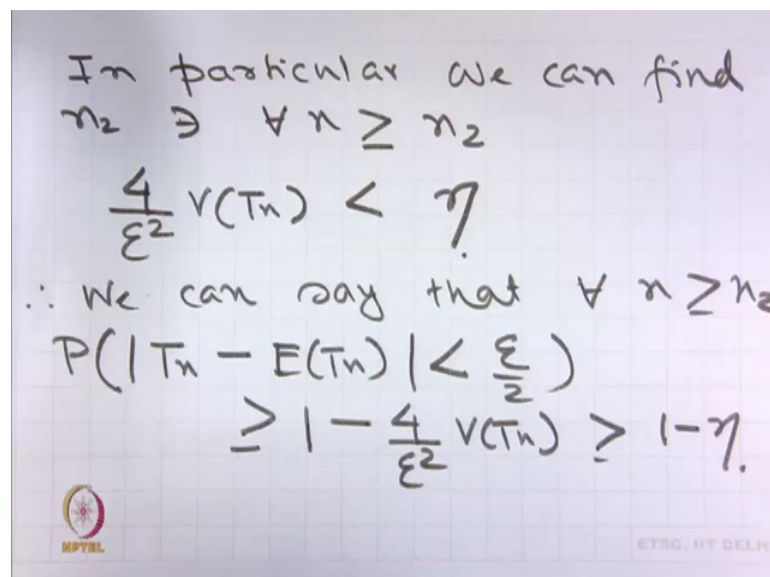 In particular we can find
n₂ ∋ ∀ n ≥ n₂
4/ε² V(Tn) < η.
∴ We can say that ∀ n ≥ n₂
P(|Tn − E(Tn)| < ε/2)
≥ 1 − 4/ε² V(Tn) > 1−η.
NPTEL
ETSC, IIT DELH